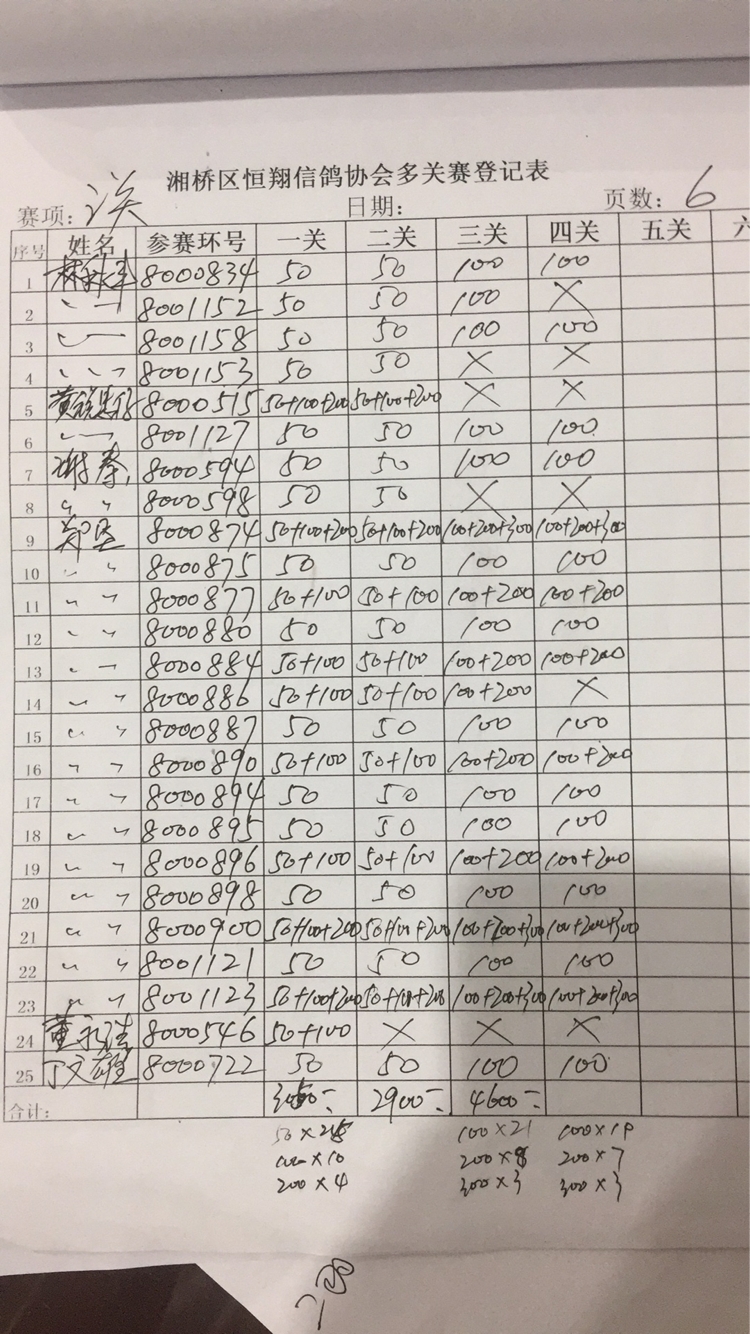 湘桥区恒翔信鸽协会多关赛登记表
赛项: 日期: 页数: 6
序号 姓名 参赛环号 一关 二关 三关 四关 五关 六
1 8000834 50 50 100 100
2 〃 8001152 50 50 100 ×
3 〃 8001158 50 50 100 100
4 〃 8001153 50 50 × ×
5 8000515 50+100+200 50+100+200 × ×
6 〃 8001127 50 50 100 100
7 谢泰 8000594 50 50 100 100
8 〃 8000598 50 50 × ×
9 郑坚 8000874 50+100+200 50+100+200 100+200+300 100+200+300
10 〃 8000875 50 50 100 100
11 〃 8000877 50+100 50+100 100+200 100+200
12 〃 8000880 50 50 100 100
13 〃 8000884 50+100 50+100 100+200 100+200
14 〃 8000886 50+100 50+100 100+200 ×
15 〃 8000887 50 50 100 100
16 〃 8000890 50+100 50+100 100+200 100+200
17 〃 8000894 50 50 100 100
18 〃 8000895 50 50 100 100
19 〃 8000896 50+100 50+100 100+200 100+200
20 〃 8000898 50 50 100 100
21 〃 8000900 50+100+200 50+100+200 100+200+300 100+200+300
22 〃 8001121 50 50 100 100
23 〃 8001123 50+100+200 50+100+200 100+200+300 100+200+300
24 8000546 50+100 × × ×
25 丁文雄 8000722 50 50 100 100
合计: 2900 4600
50×25 100×21 100×19
100×10 200×8 200×7
200×4 300×3 300×3